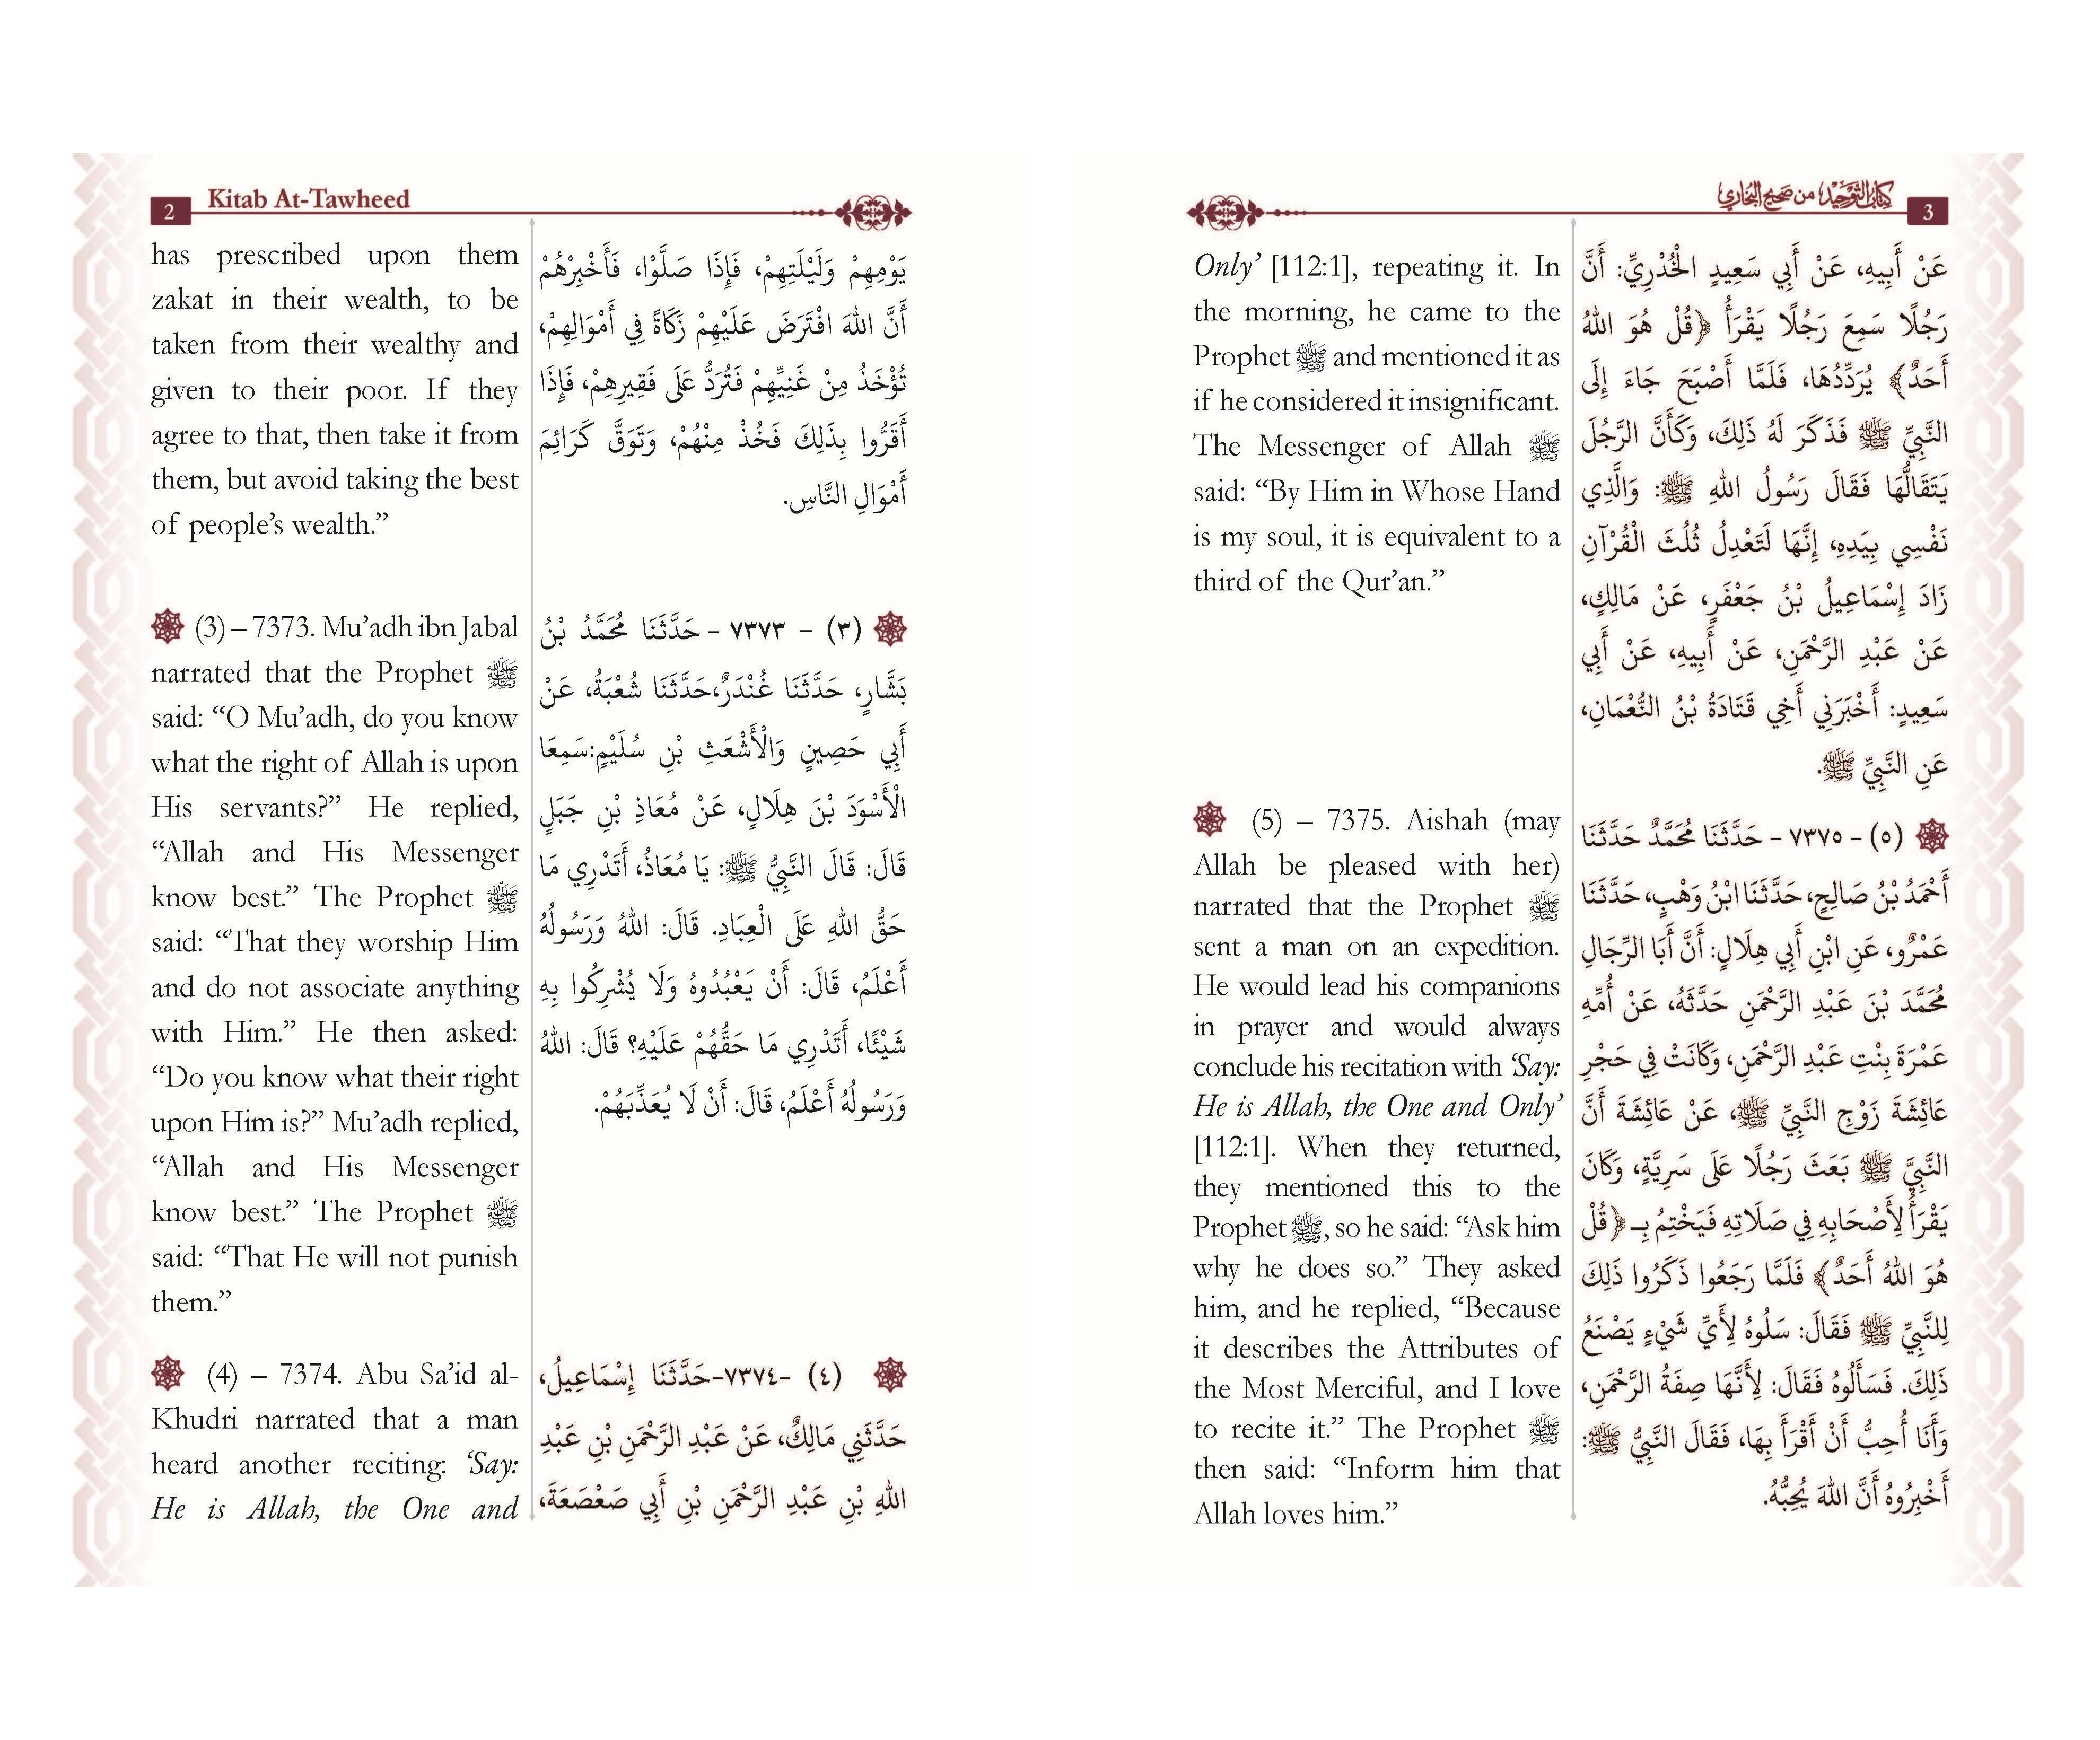 2
Kitab At-Tawheed
has prescribed upon them
zakat in their wealth, to be
taken from their wealthy and
given to their poor. If they
agree to that, then take it from
them, but avoid taking the best
of people’s wealth.”
(3) – 7373. Mu’adh ibn Jabal
narrated that the Prophet ﷺ
said: “O Mu’adh, do you know
what the right of Allah is upon
His servants?” He replied,
“Allah and His Messenger
know best.” The Prophet ﷺ
said: “That they worship Him
and do not associate anything
with Him.” He then asked:
“Do you know what their right
upon Him is?” Mu’adh replied,
“Allah and His Messenger
know best.” The Prophet ﷺ
said: “That He will not punish
them.”
(4) – 7374. Abu Sa’id al-
Khudri narrated that a man
heard another reciting: ‘Say:
He is Allah, the One and
يَوْمِهِمْ وَلَيْلَتِهِمْ، فَإِذَا صَلَّوْا، فَأَخْبِرْهُمْ
أَنَّ اللهَ افْتَرَضَ عَلَيْهِمْ زَكَاةً فِي أَمْوَالِهِمْ،
تُؤْخَذُ مِنْ غَنِيِّهِمْ فَتُرَدُّ عَلَى فَقِيرِهِمْ، فَإِذَا
أَقَرُّوا بِذَلِكَ فَخُذْ مِنْهُمْ، وَتَوَقَّ كَرَائِمَ
أَمْوَالِ النَّاسِ.
(٣) - ٧٣٧٣ - حَدَّثَنَا مُحَمَّدُ بْنُ
بَشَّارٍ، حَدَّثَنَا غُنْدَرٌ،حَدَّثَنَا شُعْبَةُ، عَنْ
أَبِي حَصِينٍ وَالْأَشْعَثِ بْنِ سُلَيْمٍ:سَمِعَا
الْأَسْوَدَ بْنَ هِلَالٍ، عَنْ مُعَاذِ بْنِ جَبَلٍ
قَالَ: قَالَ النَّبِيُّ ﷺ: يَا مُعَاذُ، أَتَدْرِي مَا
حَقُّ اللهِ عَلَى الْعِبَادِ. قَالَ: اللهُ وَرَسُولُهُ
أَعْلَمُ، قَالَ: أَنْ يَعْبُدُوهُ وَلَا يُشْرِكُوا بِهِ
شَيْئًا، أَتَدْرِي مَا حَقُّهُمْ عَلَيْهِ؟ قَالَ: اللهُ
وَرَسُولُهُ أَعْلَمُ، قَالَ: أَنْ لَا يُعَذِّبَهُمْ.
(٤) -٧٣٧٤-حَدَّثَنَا إِسْمَاعِيلُ،
حَدَّثَنِي مَالِكٌ، عَنْ عَبْدِ الرَّحْمَنِ بْنِ عَبْدِ
اللهِ بْنِ عَبْدِ الرَّحْمَنِ بْنِ أَبِي صَعْصَعَةَ،
كِتَابُ التَّوْحِيْدِ مِن صَحِيحِ البُخَارِي
3
Only’ [112:1], repeating it. In
the morning, he came to the
Prophet ﷺ and mentioned it as
if he considered it insignificant.
The Messenger of Allah ﷺ
said: “By Him in Whose Hand
is my soul, it is equivalent to a
third of the Qur’an.”
(5) – 7375. Aishah (may
Allah be pleased with her)
narrated that the Prophet ﷺ
sent a man on an expedition.
He would lead his companions
in prayer and would always
conclude his recitation with ‘Say:
He is Allah, the One and Only’
[112:1]. When they returned,
they mentioned this to the
Prophet ﷺ, so he said: “Ask him
why he does so.” They asked
him, and he replied, “Because
it describes the Attributes of
the Most Merciful, and I love
to recite it.” The Prophet ﷺ
then said: “Inform him that
Allah loves him.”
عَنْ أَبِيهِ، عَنْ أَبِي سَعِيدٍ الْخُدْرِيِّ: أَنَّ
رَجُلًا سَمِعَ رَجُلًا يَقْرَأُ ﴿قُلْ هُوَ اللهُ
أَحَدٌ﴾ يُرَدِّدُهَا، فَلَمَّا أَصْبَحَ جَاءَ إِلَى
النَّبِيِّ ﷺ فَذَكَرَ لَهُ ذَلِكَ، وَكَأَنَّ الرَّجُلَ
يَتَقَالُّهَا فَقَالَ رَسُولُ اللهِ ﷺ: وَالَّذِي
نَفْسِي بِيَدِهِ، إِنَّهَا لَتَعْدِلُ ثُلُثَ الْقُرْآنِ
زَادَ إِسْمَاعِيلُ بْنُ جَعْفَرٍ، عَنْ مَالِكٍ،
عَنْ عَبْدِ الرَّحْمَنِ، عَنْ أَبِيهِ، عَنْ أَبِي
سَعِيدٍ: أَخْبَرَنِي أَخِي قَتَادَةُ بْنُ النُّعْمَانِ،
عَنِ النَّبِيِّ ﷺ.
(٥) - ٧٣٧٥ - حَدَّثَنَا مُحَمَّدٌ حَدَّثَنَا
أَحْمَدُ بْنُ صَالِحٍ، حَدَّثَنَا ابْنُ وَهْبٍ، حَدَّثَنَا
عَمْرٌو، عَنِ ابْنِ أَبِي هِلَالٍ: أَنَّ أَبَا الرِّجَالِ
مُحَمَّدَ بْنَ عَبْدِ الرَّحْمَنِ حَدَّثَهُ، عَنْ أُمِّهِ
عَمْرَةَ بِنْتِ عَبْدِ الرَّحْمَنِ، وَكَانَتْ فِي حَجْرِ
عَائِشَةَ زَوْجِ النَّبِيِّ ﷺ، عَنْ عَائِشَةَ أَنَّ
النَّبِيَّ ﷺ بَعَثَ رَجُلًا عَلَى سَرِيَّةٍ، وَكَانَ
يَقْرَأُ لِأَصْحَابِهِ فِي صَلَاتِهِ فَيَخْتِمُ بِـ ﴿قُلْ
هُوَ اللهُ أَحَدٌ﴾ فَلَمَّا رَجَعُوا ذَكَرُوا ذَلِكَ
لِلنَّبِيِّ ﷺ فَقَالَ: سَلُوهُ لِأَيِّ شَيْءٍ يَصْنَعُ
ذَلِكَ. فَسَأَلُوهُ فَقَالَ: لِأَنَّهَا صِفَةُ الرَّحْمَنِ،
وَأَنَا أُحِبُّ أَنْ أَقْرَأَ بِهَا، فَقَالَ النَّبِيُّ ﷺ:
أَخْبِرُوهُ أَنَّ اللهَ يُحِبُّهُ.